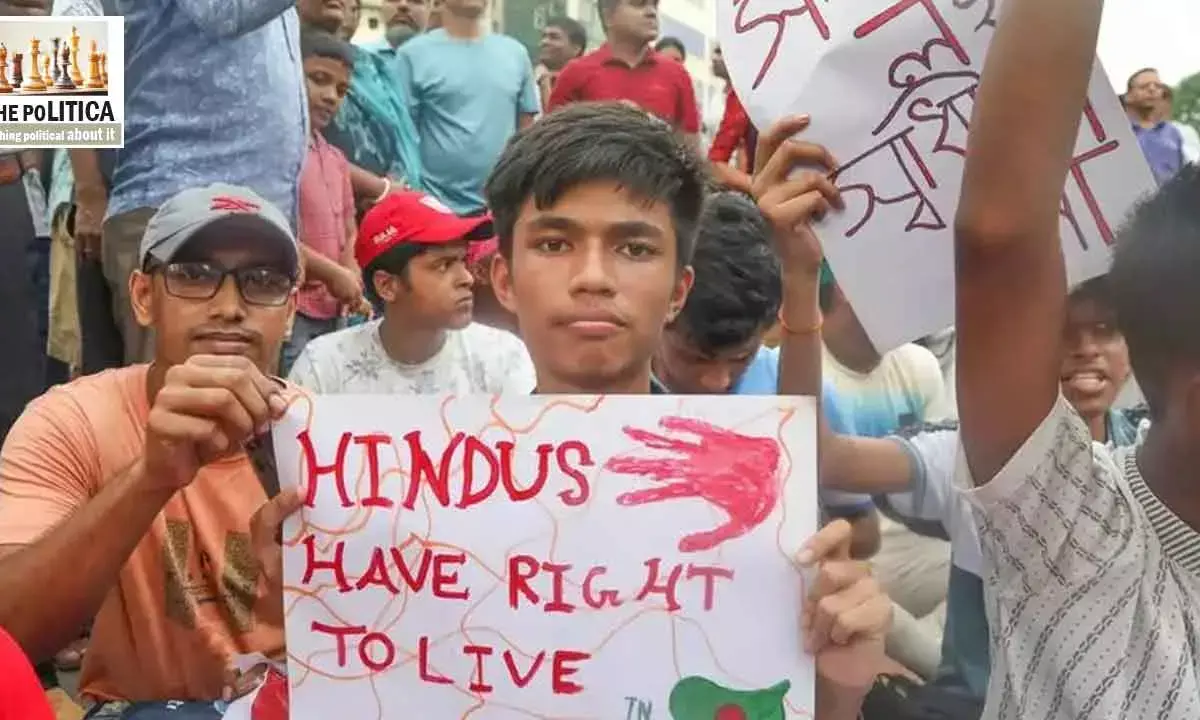 HE POLITICA
hing political about it
RAJA
HINDUS
HAVE RIGHT
TO LIVE
TN